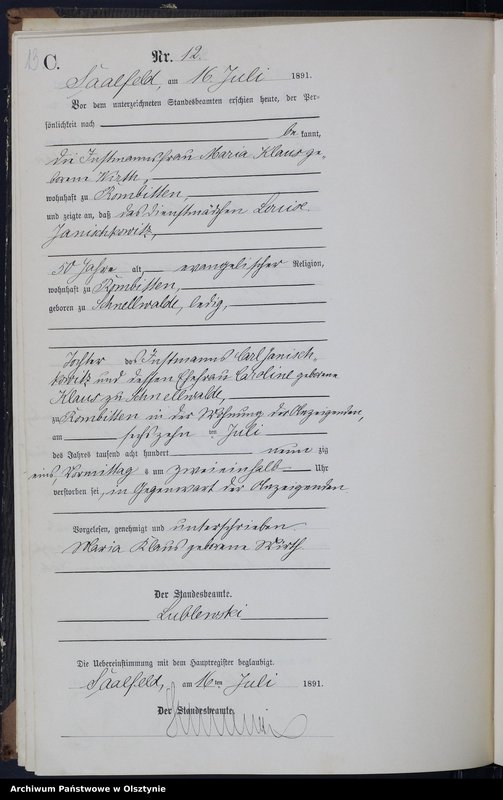 13
C.
Nr. 12.
Saalfeld, am 16. Juli 1891.
Vor dem unterzeichneten Standesbeamten erschien heute, der Per-
sönlichkeit nach
be kannt,
die Instmannsfrau Maria Klaus ge-
borene Wirth,
wohnhaft zu Kombitten,
und zeigte an, daß das Dienstmädchen Louise
Janischkowitz,
50 Jahre alt, evangelischer Religion,
wohnhaft zu Kombitten,
geboren zu Schnellwalde, ledig,
Tochter des Instmanns Carl Janisch-
kowitz und dessen Ehefrau Caroline geborene
Klaus zu Schnellwalde,
zu Kombitten in der Wohnung der Anzeigenden,
am sechszehn ten Juli
des Jahres tausend acht hundert neun zig
eins Vormittags um zweieinhalb Uhr
verstorben sei, in Gegenwart der Anzeigenden
Vorgelesen, genehmigt und unterschrieben
Maria Klaus geborene Wirth
Der Standesbeamte.
Lublewski
Die Uebereinstimmung mit dem Hauptregister beglaubigt.
Saalfeld, am 16ten Juli 1891.
Der Standesbeamte.
Archiwum Państwowe w Olsztynie